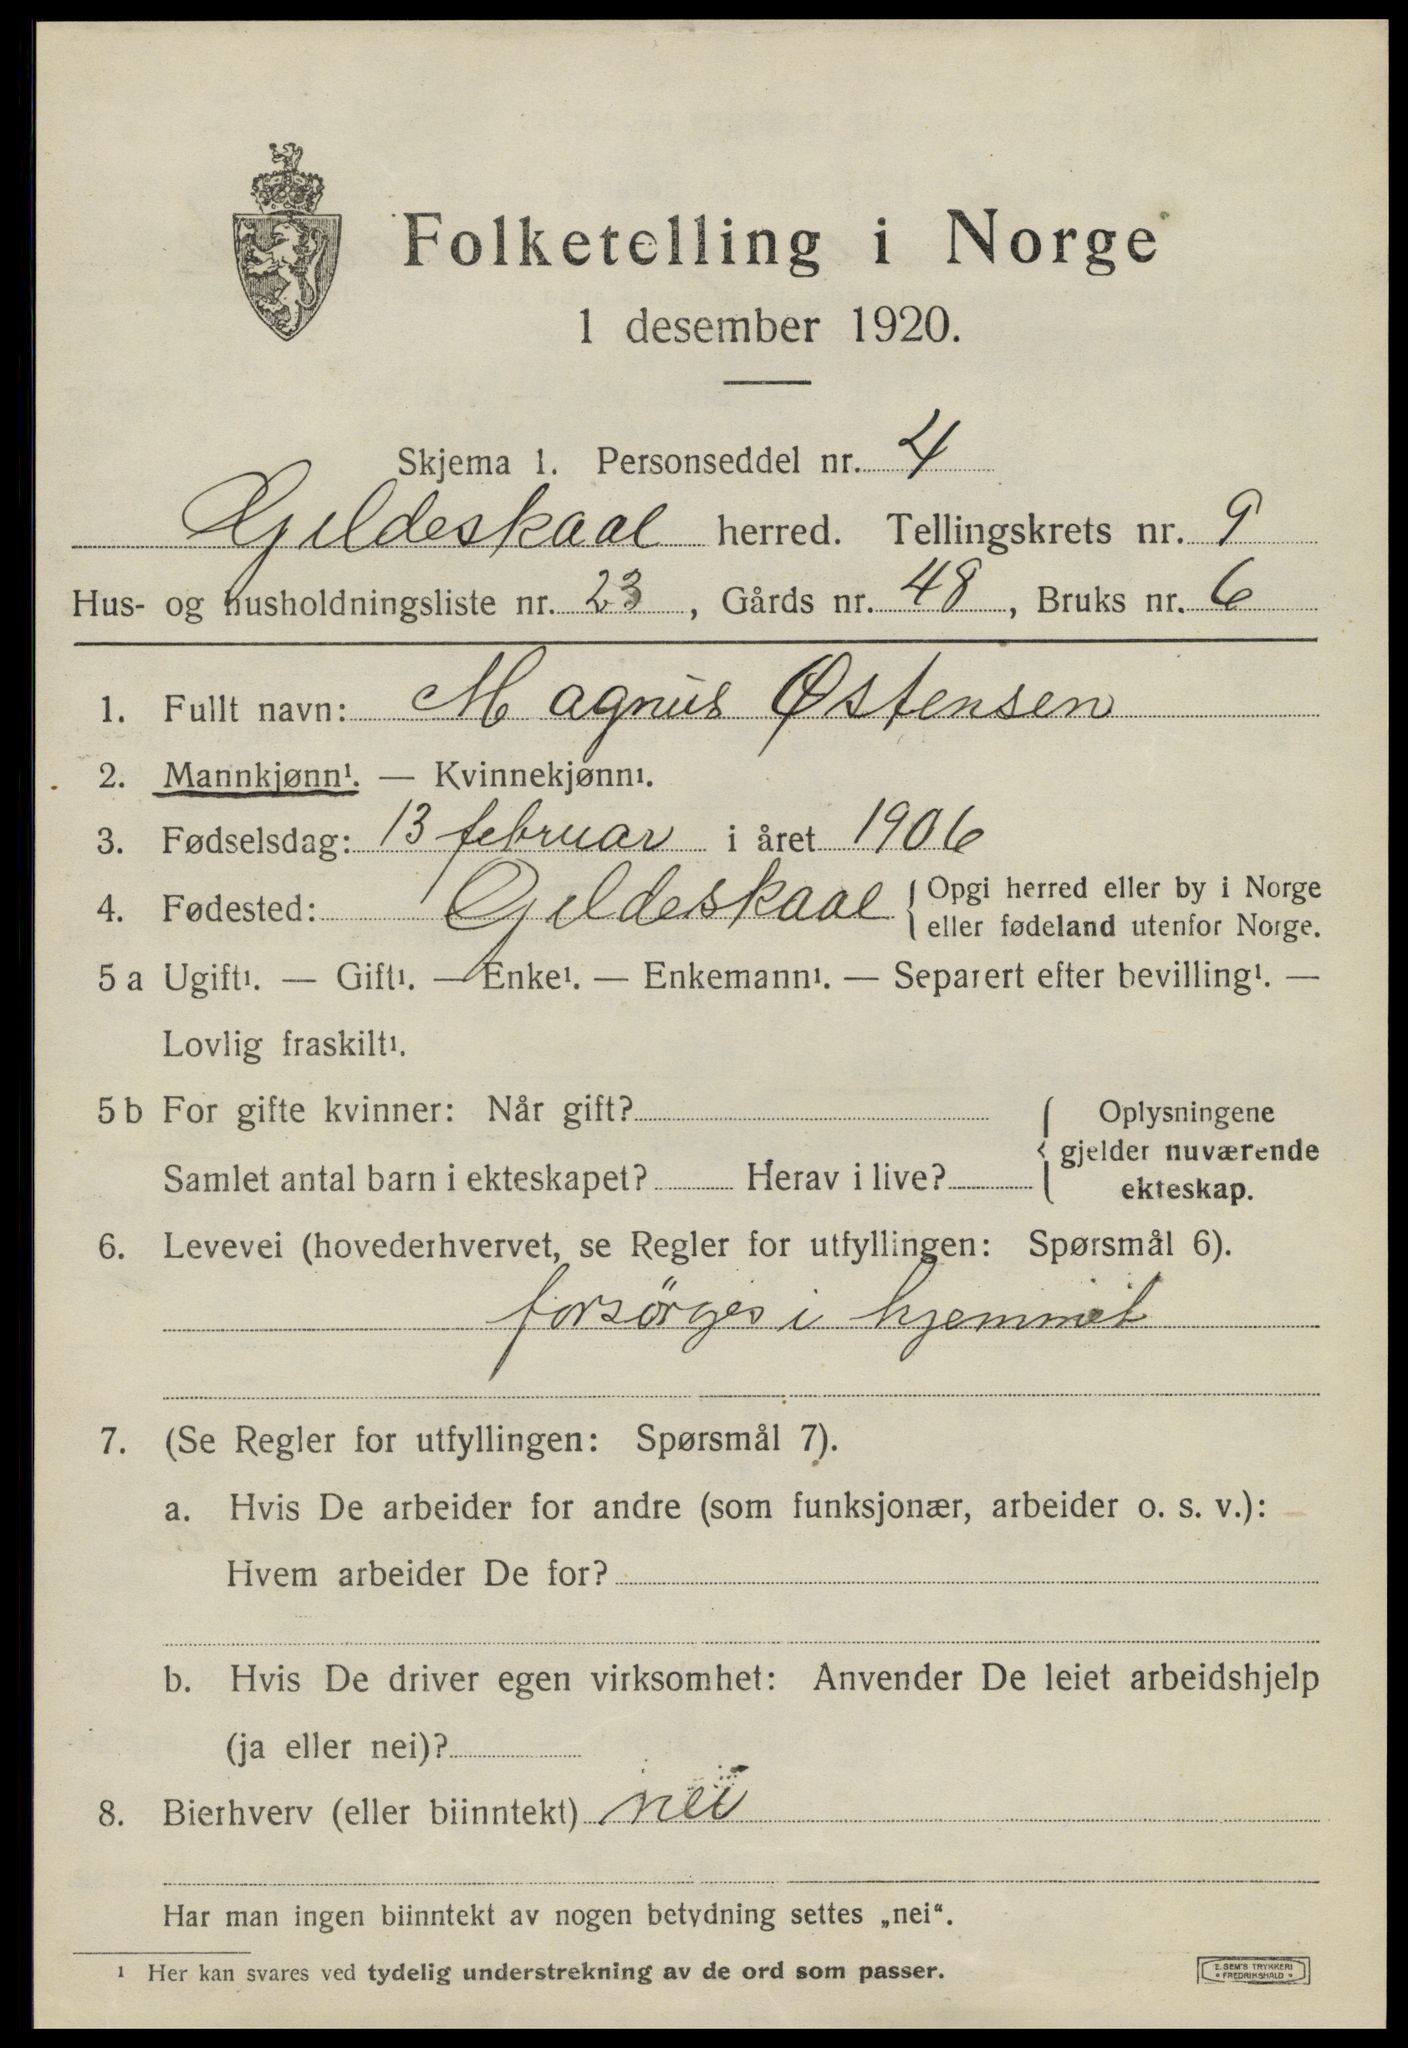 Folketelling i Norge
1 desember 1920.
Skjema 1. Personseddel nr. 4
Gildeskaal herred. Tellingskrets nr. 9
Hus- og husholdningsliste nr. 23, Gårds nr. 48, Bruks nr. 6
1. Fullt navn: Magnus Østensen
2. Mannkjønn¹. — Kvinnekjønn¹.
3. Fødselsdag: 13 februar i året 1906
4. Fødested: Gildeskaal { Opgi herred eller by i Norge
eller fødeland utenfor Norge.
5 a Ugift¹. — Gift¹. — Enke¹. — Enkemann¹. — Separert efter bevilling¹. —
Lovlig fraskilt¹.
5 b For gifte kvinner: Når gift?
Samlet antal barn i ekteskapet? Herav i live?
{ Oplysningene
gjelder nuværende
ekteskap.
6. Levevei (hovederhvervet, se Regler for utfyllingen: Spørsmål 6).
forsörges i hjemmet
7. (Se Regler for utfyllingen: Spørsmål 7).
a. Hvis De arbeider for andre (som funksjonær, arbeider o. s. v.):
Hvem arbeider De for?
b. Hvis De driver egen virksomhet: Anvender De leiet arbeidshjelp
(ja eller nei)?
8. Bierhverv (eller biinntekt) nei
Har man ingen biinntekt av nogen betydning settes „nei“.
¹ Her kan svares ved tydelig understrekning av de ord som passer.
E. SEM'S TRYKKERI
• FREDRIKSHALD •